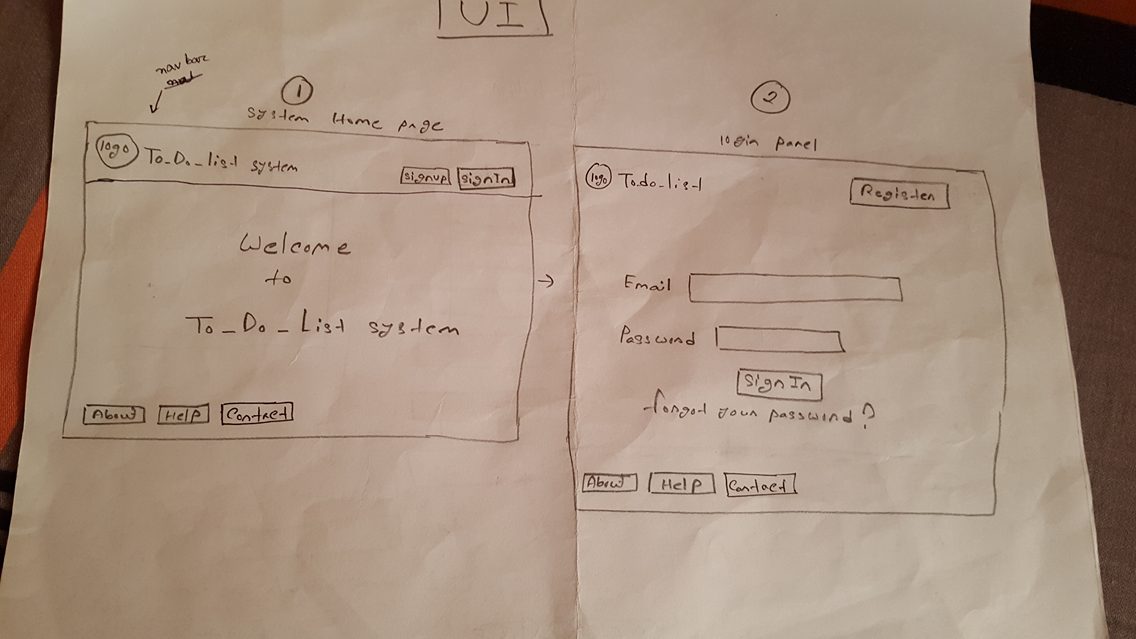 UI
nav bar
1
System Home page
logo To_Do_list system
signup signIn
Welcome
to
To_Do_List system
About Help Contact
2
login panel
logo To_do_list
Register
Email
Password
Sign In
forgot your password?
About Help Contact